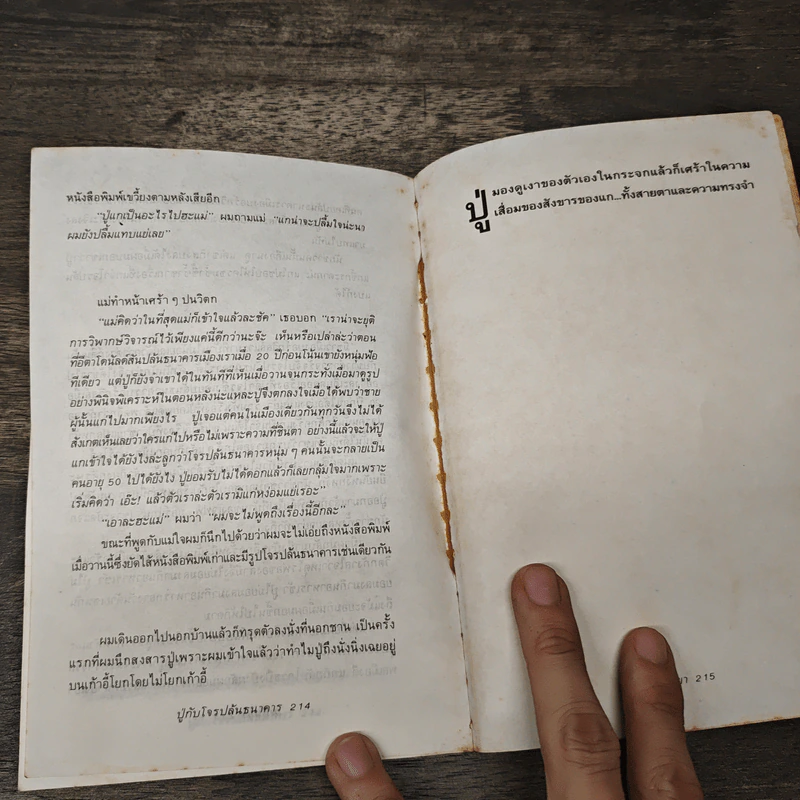 หนังสือพิมพ์เขวี้ยงตามหลังเสียอีก
"ปู่แกเป็นอะไรไปฮะแม่" ผมถามแม่ "แกน่าจะปลื้มใจน่ะนา
ผมยังปลื้มแทบแย่เลย"
แม่ทำหน้าเศร้า ๆ ปนวิตก
"แม่คิดว่าในที่สุดแม่ก็เข้าใจแล้วละซัค" เธอบอก "เราน่าจะยุติ
การวิพากษ์วิจารณ์ไว้เพียงแค่นี้ดีกว่านะจ๊ะ เห็นหรือเปล่าล่ะว่าตอน
ที่อีตาโดนัลด์สันปล้นธนาคารเมืองเราเมื่อ 20 ปีก่อนโน้นเขายังหนุ่มฟ้อ
ทีเดียว แต่ปู่ก็ยังจำเขาได้ในทันทีที่เห็นเมื่อวานจนกระทั่งเมื่อมาดูรูป
อย่างพินิจพิเคราะห์ในตอนหลังน่ะแหละปู่จึงตกลงใจเมื่อได้พบว่าชาย
ผู้นั้นแก่ไปมากเพียงไร ปู่เจอแต่คนในเมืองเดียวกันทุกวันจึงไม่ได้
สังเกตเห็นเลยว่าใครแก่ไปหรือไม่เพราะความที่ชินตา อย่างนี้แล้วจะให้ปู่
แกเข้าใจได้ยังไงล่ะลูกว่าโจรปล้นธนาคารหนุ่ม ๆ คนนั้นจะกลายเป็น
คนอายุ 50 ไปได้ยังไง ปู่ยอมรับไม่ได้ดอกแล้วก็เลยกลุ้มใจมากเพราะ
เริ่มคิดว่า เอ๊ะ! แล้วตัวเราล่ะตัวเรามิแก่หง่อมแย่เรอะ"
"เอาละฮะแม่" ผมว่า "ผมจะไม่พูดถึงเรื่องนี้อีกละ"
ขณะที่พูดกับแม่ใจผมก็นึกไปด้วยว่าผมจะไม่เอ่ยถึงหนังสือพิมพ์
เมื่อวานนี้ซึ่งยัดไส้หนังสือพิมพ์เก่าและมีรูปโจรปล้นธนาคารเช่นเดียวกัน
ผมเดินออกไปนอกบ้านแล้วก็ทรุดตัวลงนั่งที่นอกชาน เป็นครั้ง
แรกที่ผมนึกสงสารปู่เพราะผมเข้าใจแล้วว่าทำไมปู่ถึงนั่งนิ่งเฉยอยู่
บนเก้าอี้โยกโดยไม่โยกเก้าอี้
ปู่กับโจรปล้นธนาคาร 214
ปู่มองดูเงาของตัวเองในกระจกแล้วก็เศร้าในความ
เสื่อมของสังขารของแก...ทั้งสายตาและความทรงจำ
215